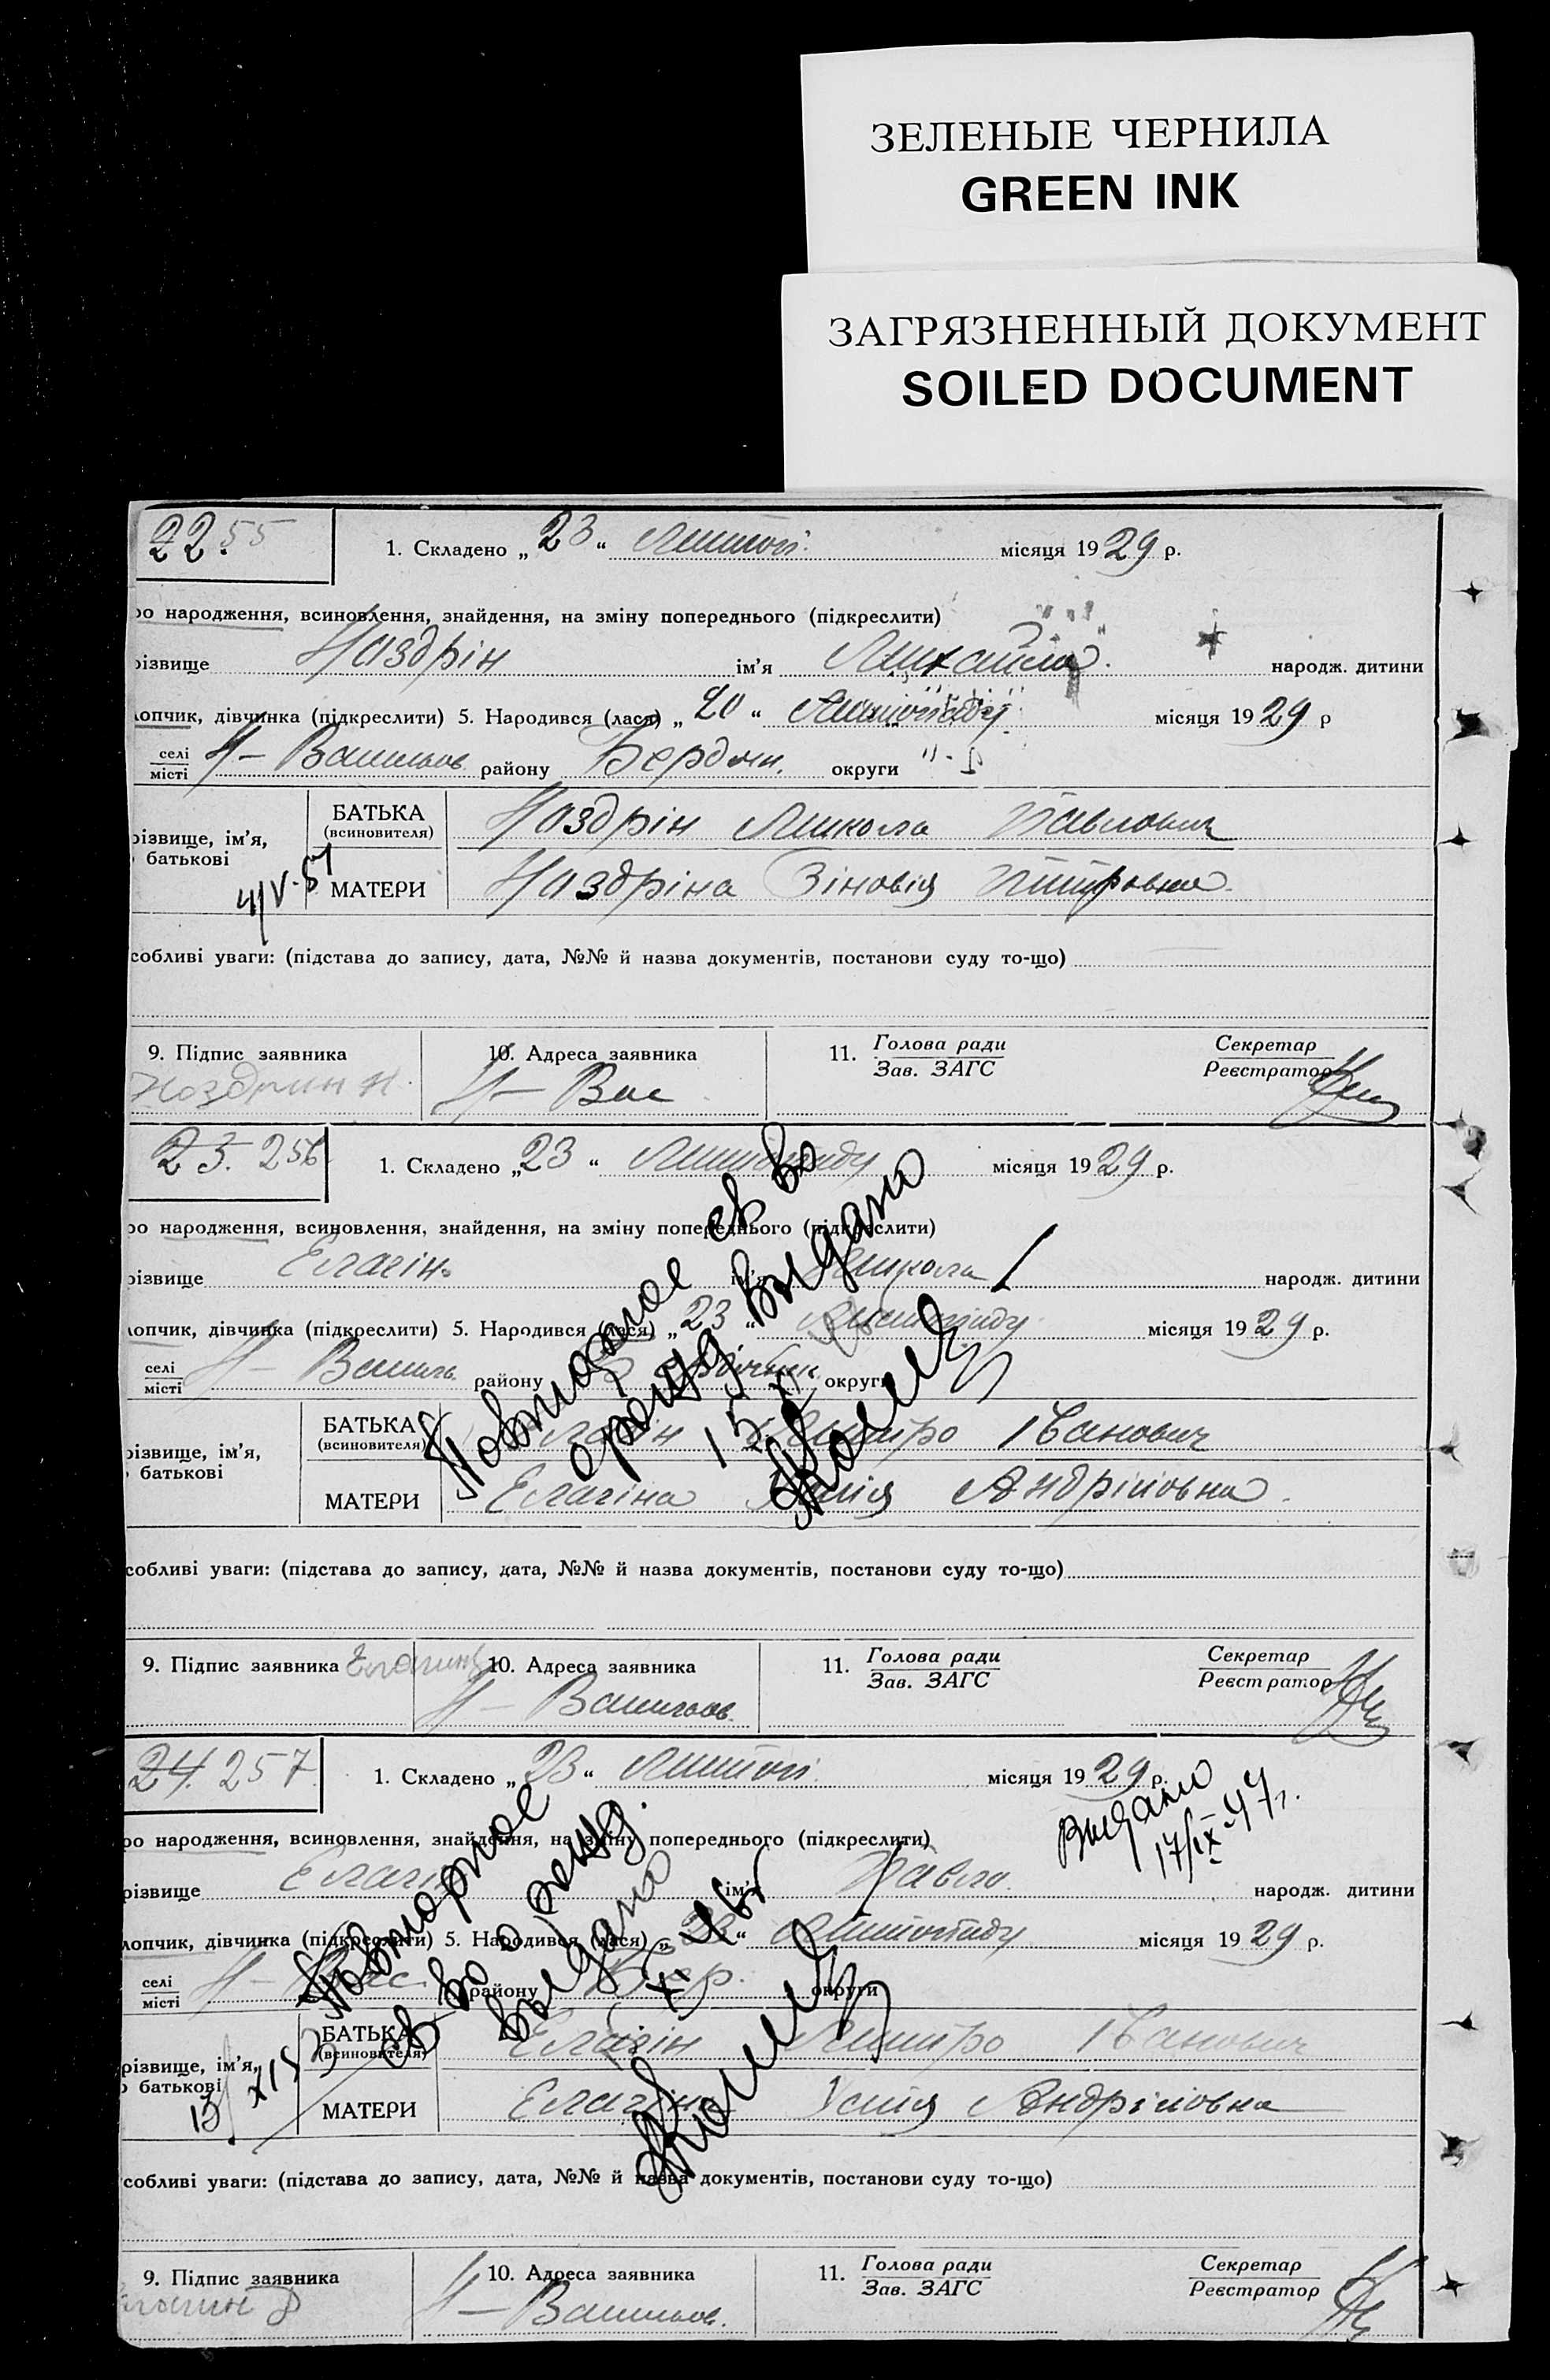 ЗЕЛЕНЫЕ ЧЕРНИЛА
GREEN INK
ЗАГРЯЗНЕННЫЙ ДОКУМЕНТ
SOILED DOCUMENT
22. 55 1. Складено „ 23 “ місяця 19 29 р.
ро народження, всиновлення, знайдення, на зміну попереднього (підкреслити)
різвище Наздрін ім’я Михайло народж. дитини
лопчик, дівчинка (підкреслити) 5. Народився (лася) „ 20 “ Листопаду місяця 19 29 р
селі
місті Н- Васильов району Бердян. округи
різвище, ім’я,
батькові
БАТЬКА
(всиновителя) Наздрін Микола Павлович
4/V-57 МАТЕРИ Наздріна Зіновія
собливі уваги: (підстава до запису, дата, №№ й назва документів, постанови суду то-що)
9. Підпис заявника 10. Адреса заявника 11. Голова ради Секретар
Зав. ЗАГС Реєстратор
Ноздрин Н. Н- Вас
23. 256 1. Складено „ 23 “ Листопаду місяця 19 29 р.
ро народження, всиновлення, знайдення, на зміну попереднього (підкреслити)
різвище Елагін ім’я Микола народж. дитини
лопчик, дівчинка (підкреслити) 5. Народився (лася) „ 23 “ Листопаду місяця 19 29 р.
селі
місті Н- Василь району округи
Повторное св во
о рожд выдано
15
різвище, ім’я,
батькові
БАТЬКА
(всиновителя) Елагін Дмитро Іванович
МАТЕРИ Елагіна Андріівна
собливі уваги: (підстава до запису, дата, №№ й назва документів, постанови суду то-що)
9. Підпис заявника Елагин 10. Адреса заявника 11. Голова ради Секретар
Зав. ЗАГС Реєстратор
Н- Васильов.
24. 257 1. Складено „ 23 “ місяця 19 29 р.
Выдано
17/IX-47г.
ро народження, всиновлення, знайдення, на зміну попереднього (підкреслити)
різвище Елагін ім’я Павло народж. дитини
лопчик, дівчинка (підкреслити) 5. Народився (лася) „ 23 “ Листопаду місяця 19 29 р.
селі
місті Н- Вас. району Бер. округи
Повторное
св во о рожд.
выдано
різвище, ім’я,
батькові
БАТЬКА
(всиновителя) Елагін Дмитро Іванович
МАТЕРИ Елагіна Андріівна
собливі уваги: (підстава до запису, дата, №№ й назва документів, постанови суду то-що)
9. Підпис заявника 10. Адреса заявника 11. Голова ради Секретар
Зав. ЗАГС Реєстратор
Н- Васильов.